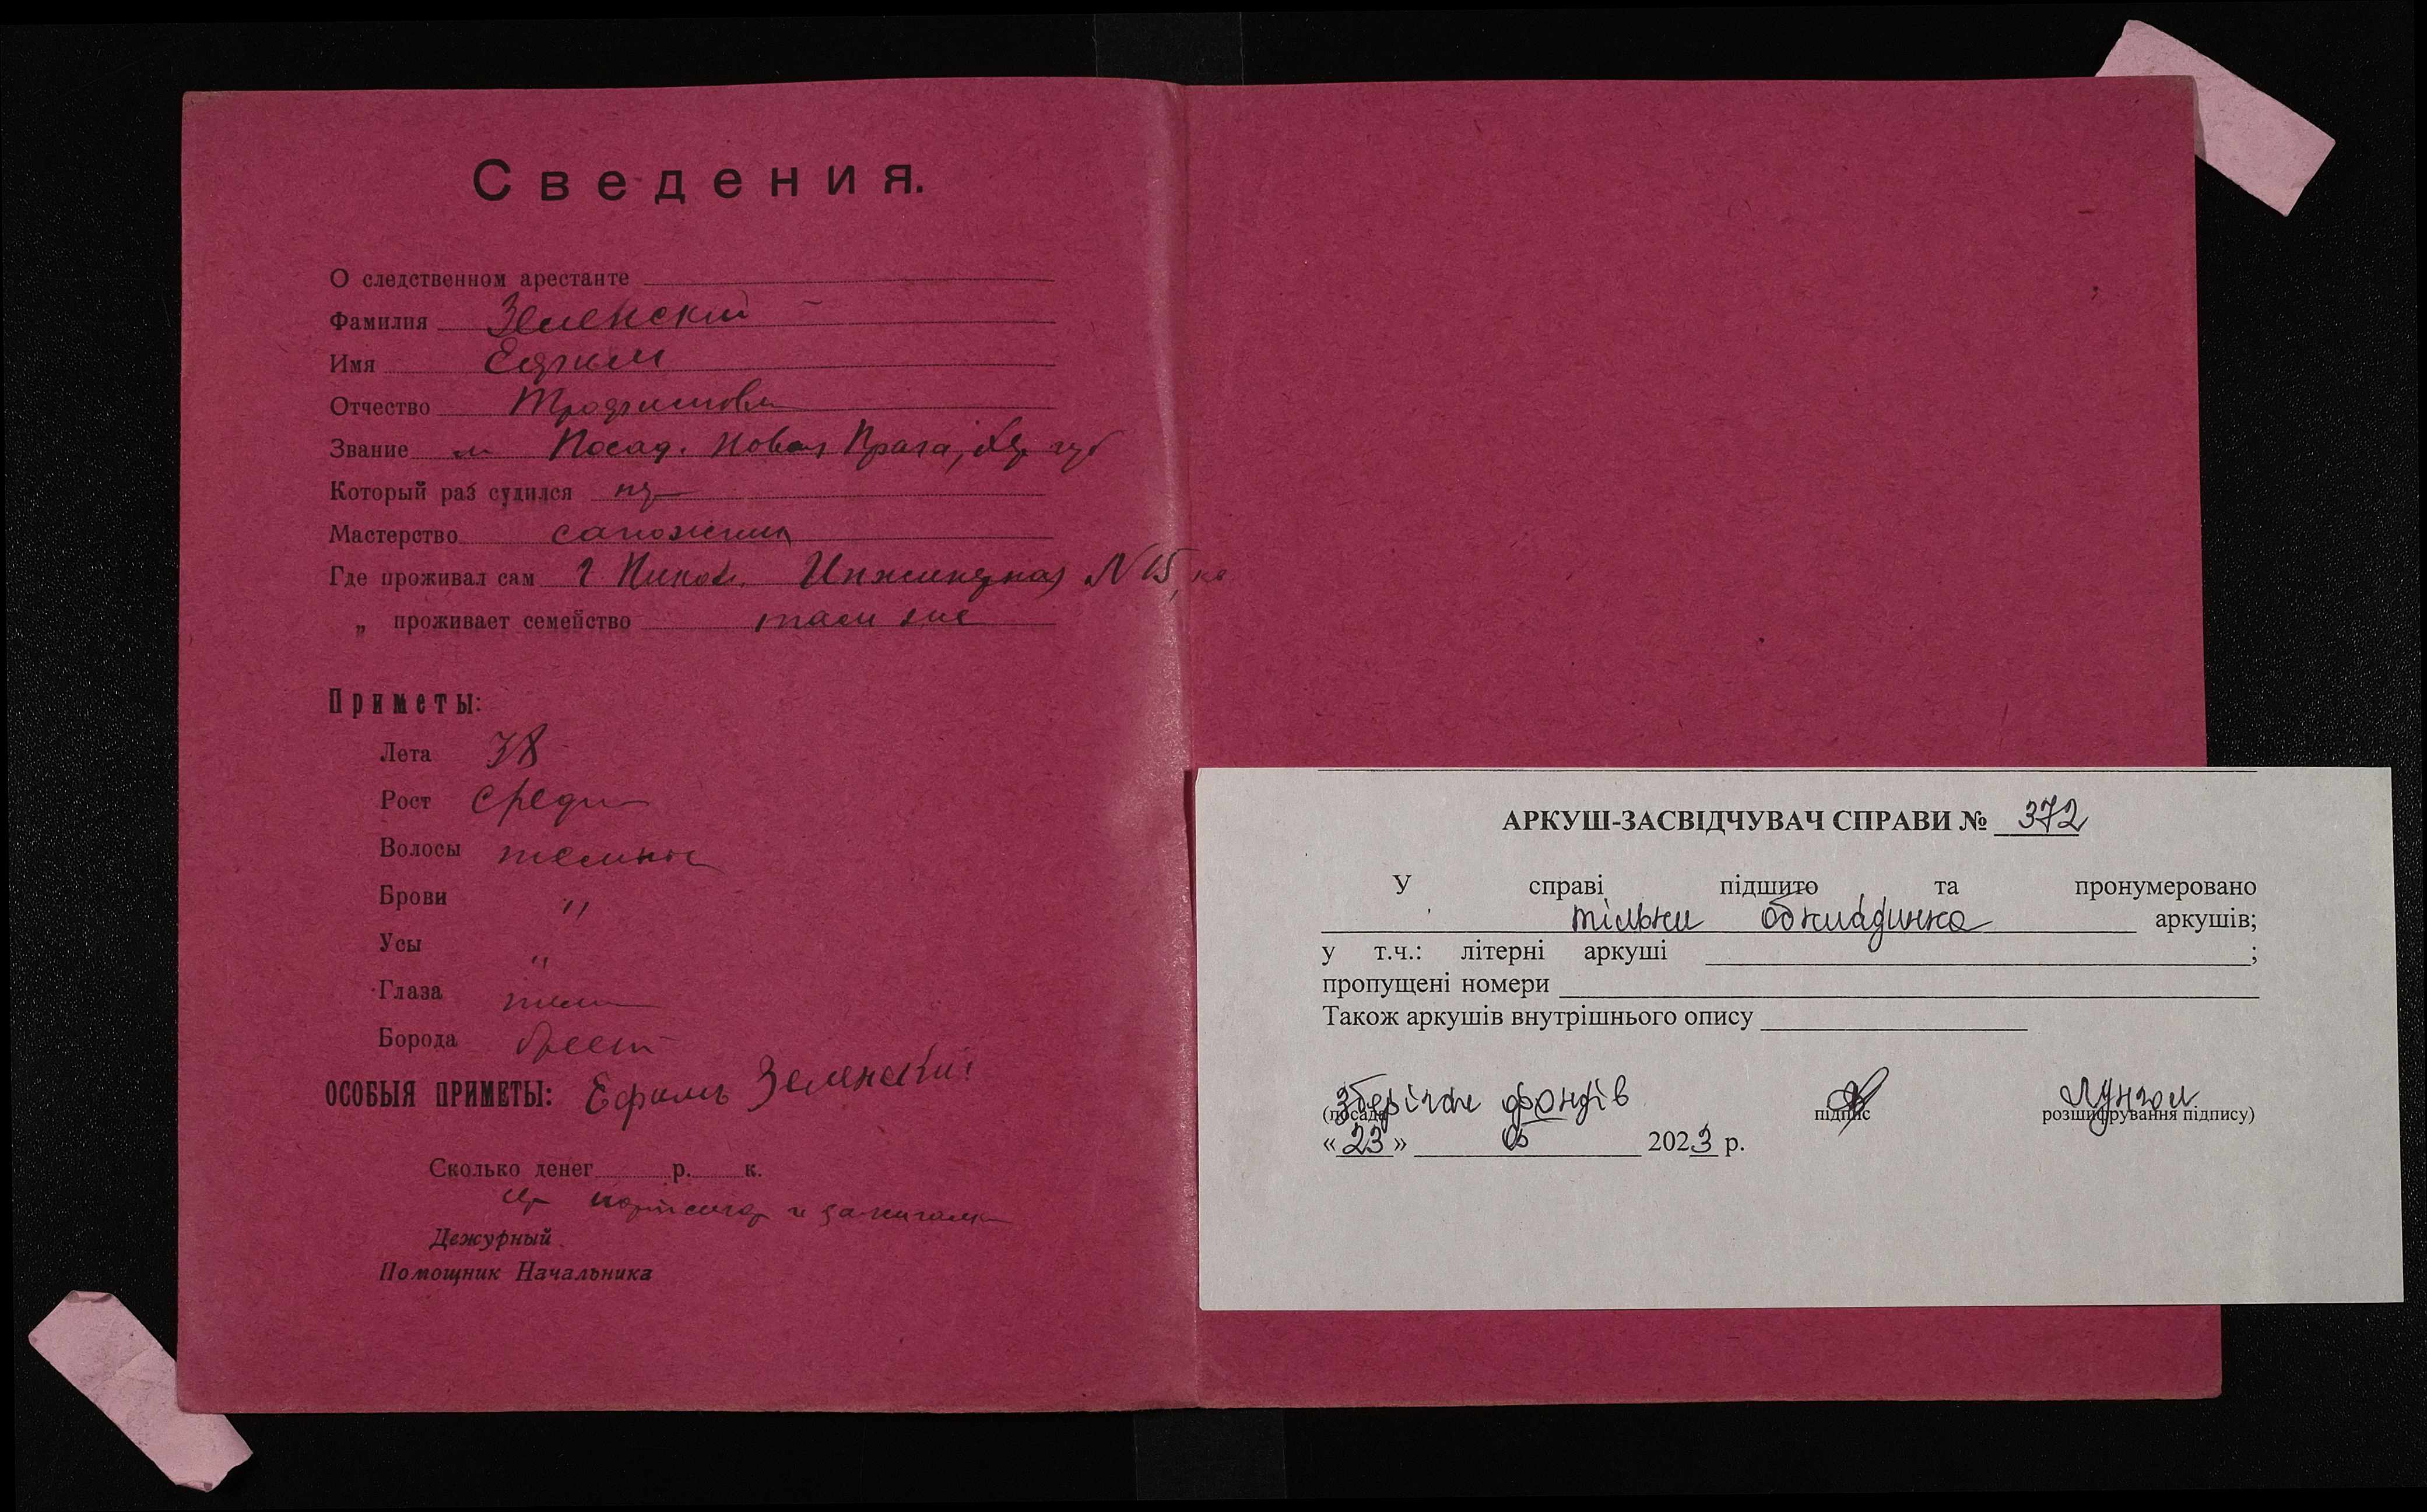 Сведения.
О следственном арестанте
Фамилия Зеленский
Имя Ефим
Отчество Трофимов
Звание м Посад. Новая Прага, Хер губ
Который раз судился
Мастерство сапожник
Где проживал сам г Никол. Инженерная N 15,
„ проживает семейство там же
Приметы:
Лета 38
Рост средн
Волосы темные
Брови "
Усы "
Глаза темн
Борода бреет
ОСОБЫЯ ПРИМЕТЫ: Ефимъ Зеленский
Сколько денег р. к.
портсигар и зажигалка
Дежурный
Помощник Начальника
АРКУШ-ЗАСВІДЧУВАЧ СПРАВИ № 372
У справі підшито та пронумеровано
тільки обкладинка аркушів;
у т.ч.: літерні аркуші ;
пропущені номери
Також аркушів внутрішнього опису
Зберігач фондів
(посада підпис розшифрування підпису)
« 23 » 05 2023 р.